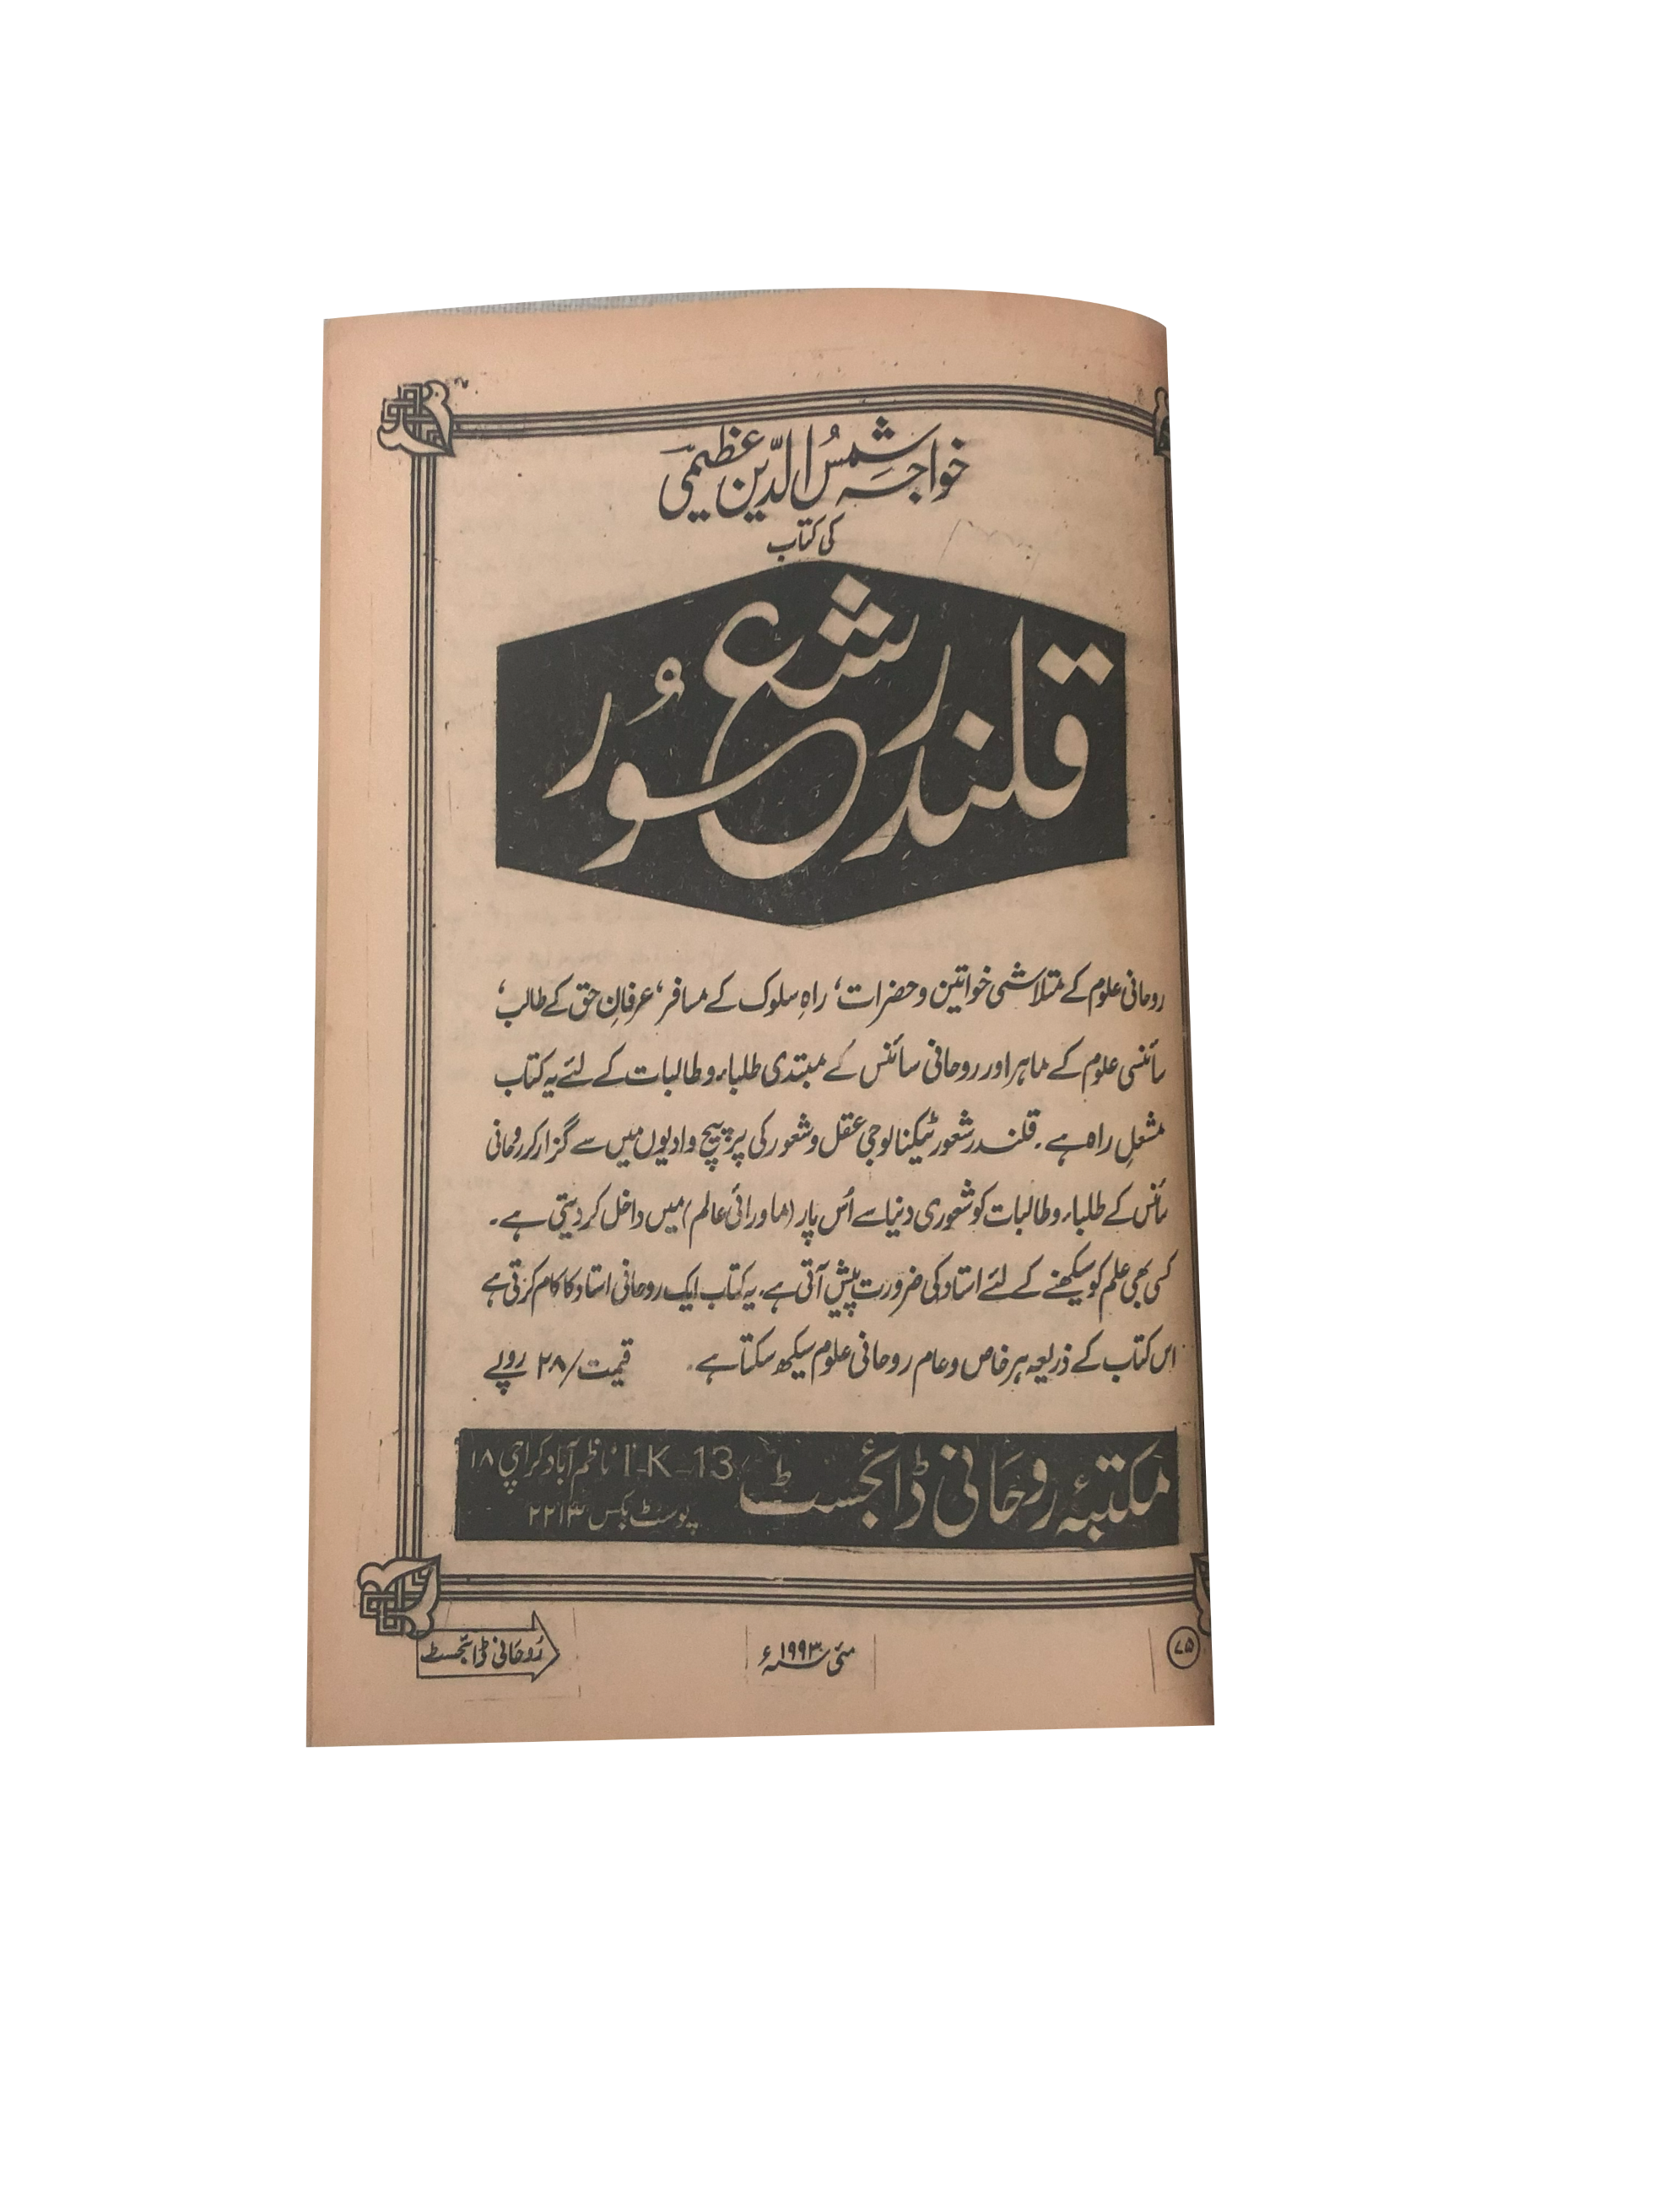 خواجہ شمسُ الدّین عظیمی
کی کتاب
قلندر شعُور
روحانی علوم کے متلاشی خواتین و حضرات، راہِ سلوک کے مسافر، عرفانِ حق کے طالب،
سائنسی علوم کے ماہر اور روحانی سائنس کے مبتدی طلباء و طالبات کے لئے یہ کتاب
مشعلِ راہ ہے۔ قلندر شعور ٹیکنالوجی عقل و شعور کی پر پیچ وادیوں میں سے گزار کر روحانی
سائنس کے طلباء و طالبات کو شعوری دنیا سے اُس پار (ماورائی عالم) میں داخل کر دیتی ہے۔
کسی بھی علم کو سیکھنے کے لئے استاد کی ضرورت پیش آتی ہے۔ یہ کتاب ایک روحانی استاد کا کام کرتی ہے
اس کتاب کے ذریعہ ہر خاص و عام روحانی علوم سیکھ سکتا ہے۔ قیمت /۲۸ روپے
مکتبۂ روحَانی ڈائجسٹ 1-K-13 ناظم آباد کراچی ۱۸
پوسٹ بکس ۲۲۱۳
۷۵
مئی ۱۹۹۳ء
رُوحَانی ڈائجسٹ